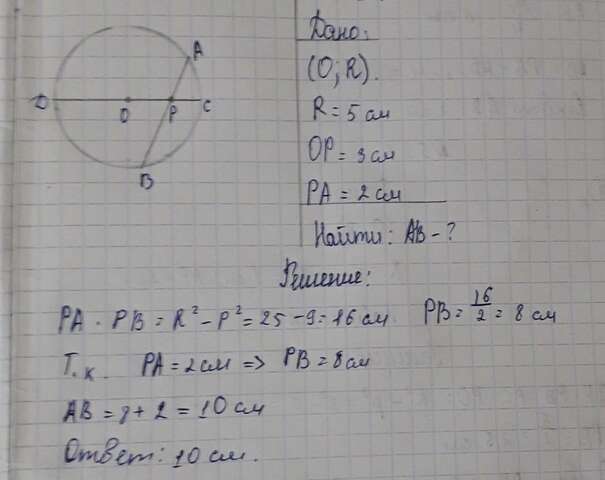 Дано:
(O; R).
R = 5 см
OP = 3 см
PA = 2 см
Найти: AB - ?
A
D
O
P
C
B
Решение:
PA · PB = R² - P² = 25 - 9 = 16 см PB = 16/2 = 8 см
Т.к. PA = 2 см => PB = 8 см
AB = 8 + 2 = 10 см
Ответ: 10 см.